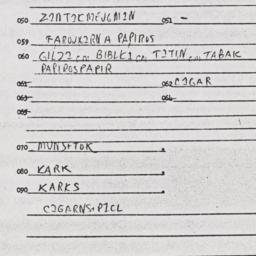 050 ZINTIKMEJGMIN 051 –
059 FAROJKIRN A PAPIROS
060 GILZI (,,) BIBLKI (,,) TITIN (,,) TABAK
PAPIROSPAPIR
061 062 CIGAR
063 064
065
070 MUNSTOK .
080 KARK .
090 KARKS .
CIGARNSPICL